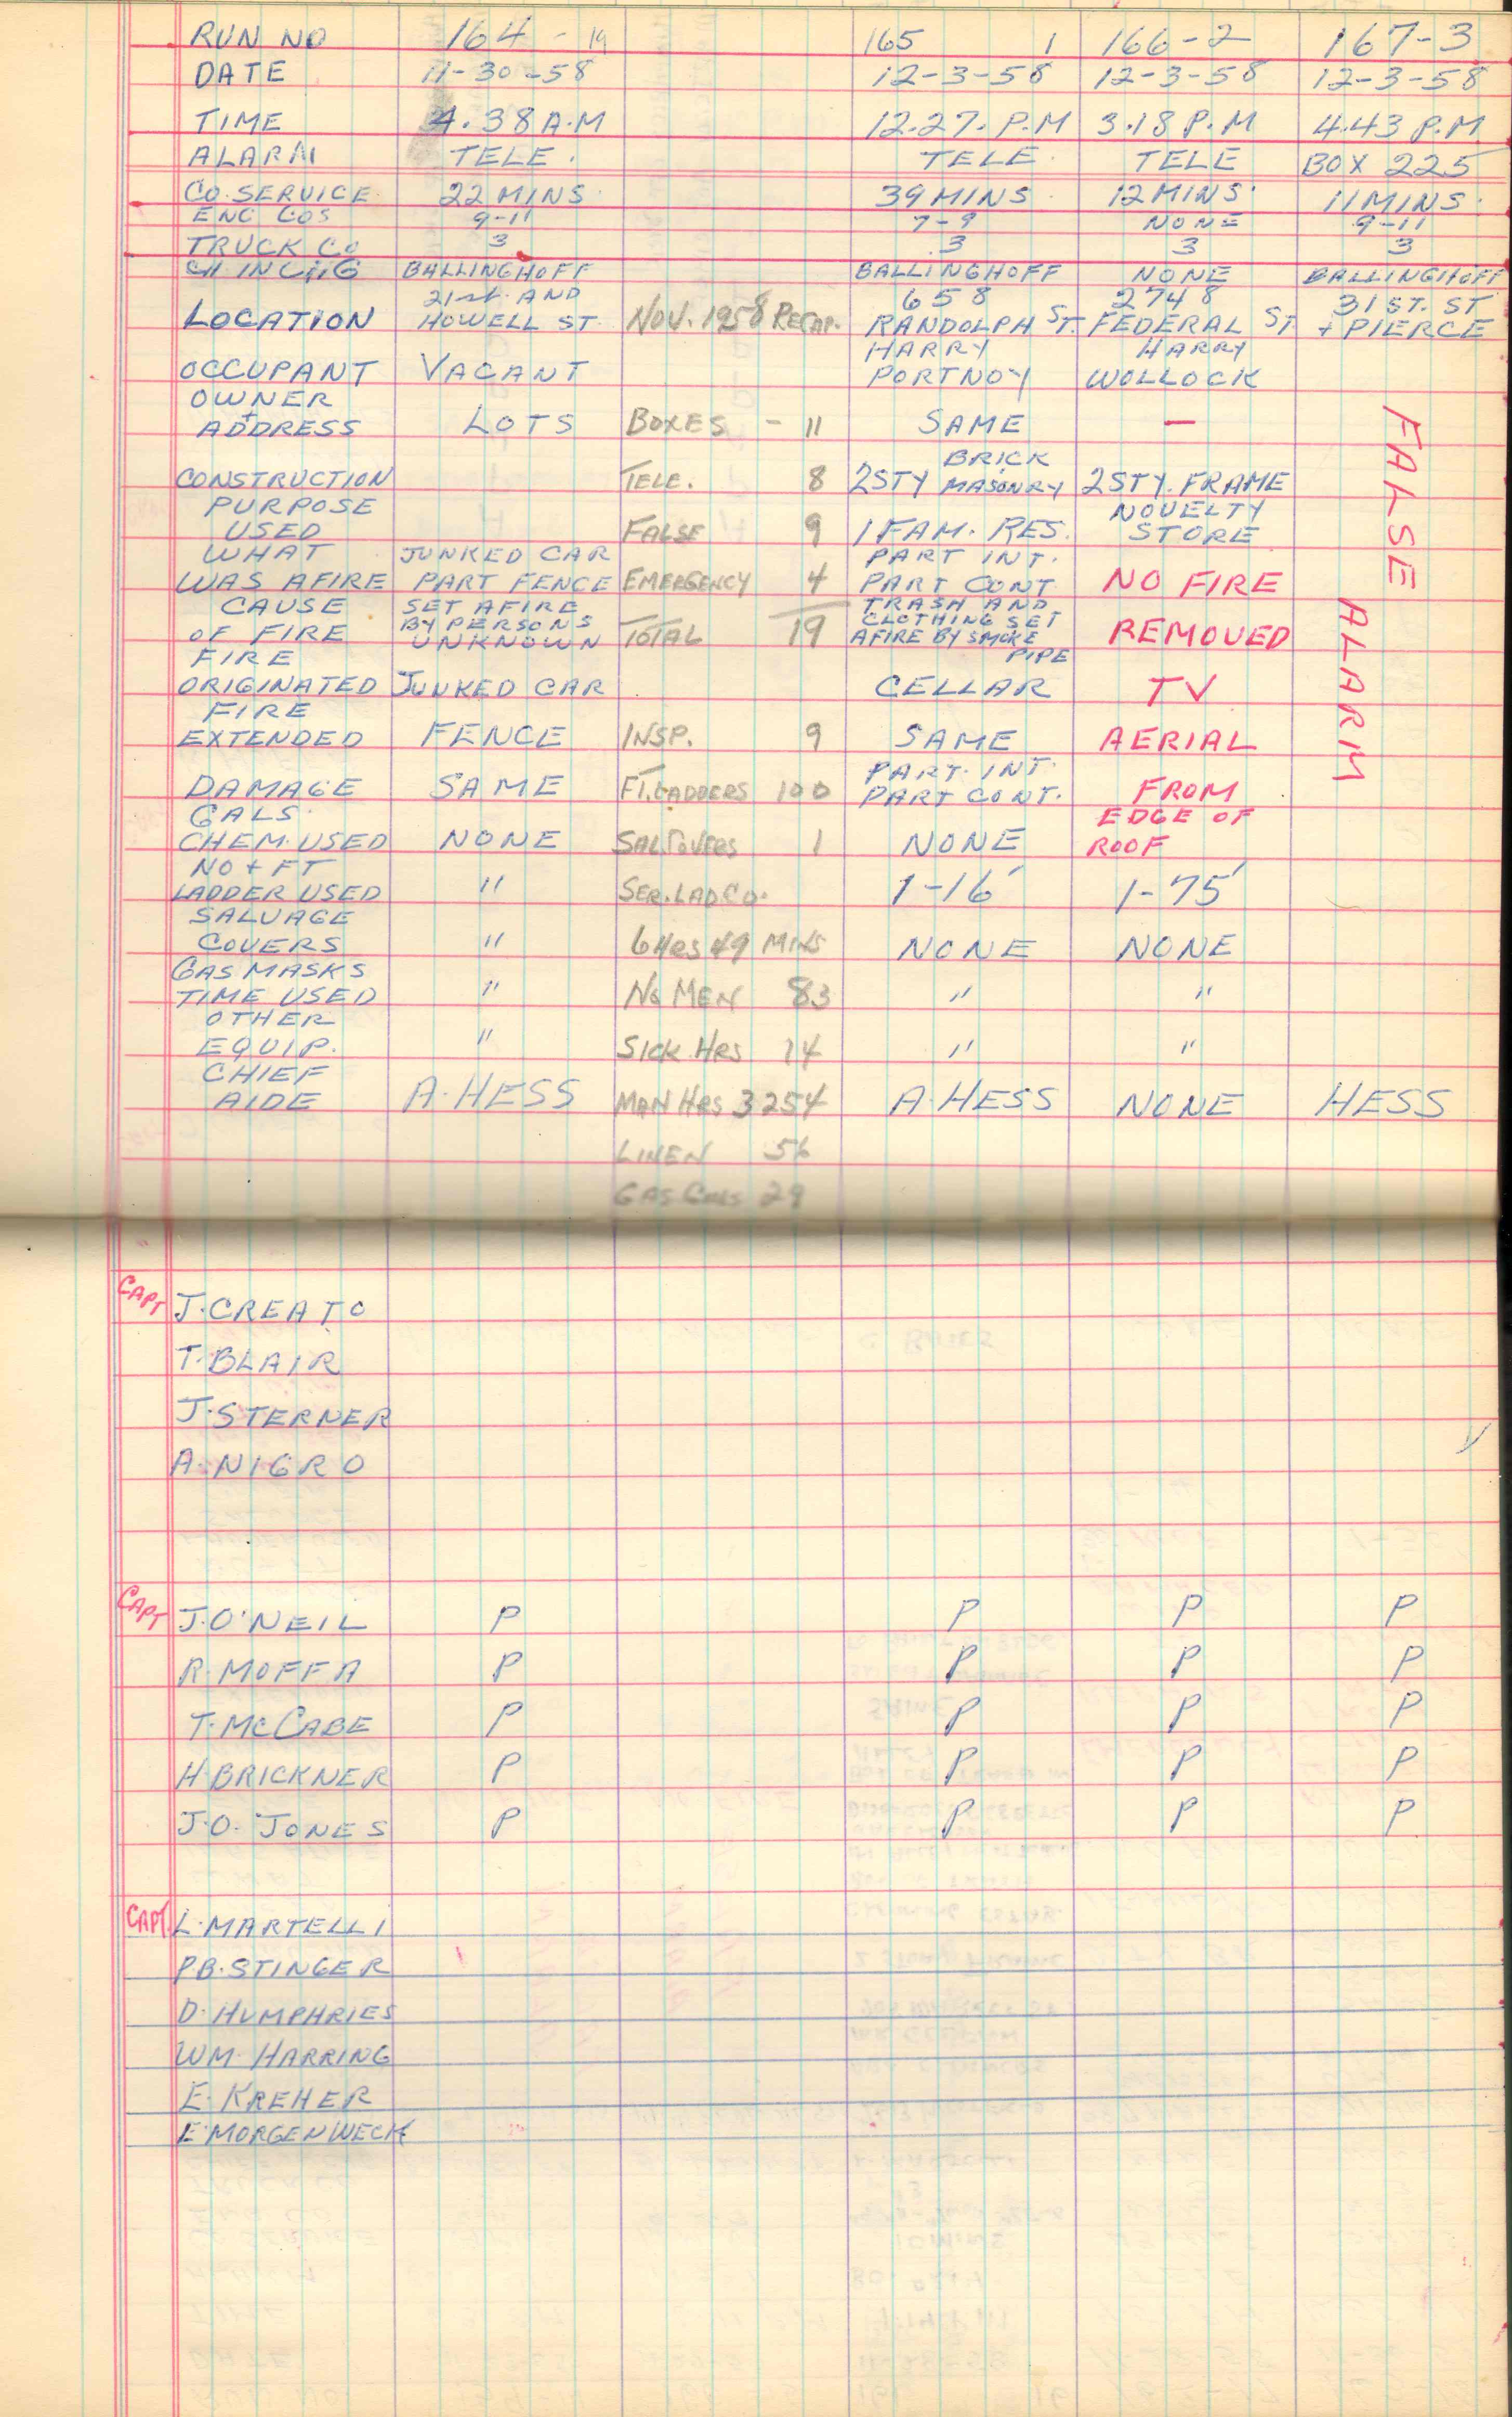 RUN NO 164 - 19 165 1 166-2 167-3
DATE 11-30-58 12-3-58 12-3-58 12-3-58
TIME 4.38 A.M 12.27. P.M 3.18 P.M 4.43 P.M
ALARM TELE. TELE. TELE BOX 225
CO. SERVICE 22 MINS. 39 MINS. 12 MINS. 11 MINS.
ENG COS 9-11 7-9 NONE 9-11
TRUCK CO 3 3 3 3
BALLINGHOFF BALLINGHOFF NONE BALLINGHOFF
21st. AND 658 2748 31ST. ST
LOCATION HOWELL ST. NOV. 1958 RECAP. RANDOLPH ST. FEDERAL ST. + PIERCE
HARRY HARRY
OCCUPANT VACANT PORTNOY WOLLOCK
OWNER
+
ADDRESS LOTS BOXES - 11 SAME —
BRICK
CONSTRUCTION TELE. 8 2STY MASONRY 2STY. FRAME
PURPOSE NOVELTY
USED FALSE 9 1 FAM. RES. STORE
WHAT JUNKED CAR PART INT.
WAS AFIRE PART FENCE EMERGENCY 4 PART CONT. NO FIRE
CAUSE SET AFIRE TRASH AND
BY PERSONS CLOTHING SET
OF FIRE UNKNOWN TOTAL 19 AFIRE BY SMOKE REMOVED
FIRE PIPE
ORIGINATED JUNKED CAR CELLAR TV
FIRE
EXTENDED FENCE INSP. 9 SAME AERIAL
PART. INT.
DAMAGE SAME FT. LADDERS 100 PART CONT. FROM
GALS. EDGE OF
CHEM. USED NONE SAL. COVERS 1 NONE ROOF
NO + FT
LADDER USED " SER. LAD CO. 1-16' 1-75'
SALVAGE
COVERS " 6 HRS 49 MINS NONE NONE
GAS MASKS
TIME USED " No MEN 83 " "
OTHER
EQUIP. " SICK HRS 14 " "
CHIEF
AIDE A. HESS MAN HRS 3254 A. HESS NONE HESS
LINEN 56
GAS GALS 29
FALSE ALARM
CAPT J. CREATO
T. BLAIR
J. STERNER
A. NIGRO
CAPT J. O'NEIL P P P P
R. MOFFA P P P P
T. MCCABE P P P P
H BRICKNER P P P P
J. O. JONES P P P P
CAPT. L. MARTELLI
P.B. STINGER
D. HUMPHRIES
WM. HARRING
E. KREHER
E. MORGENWECK